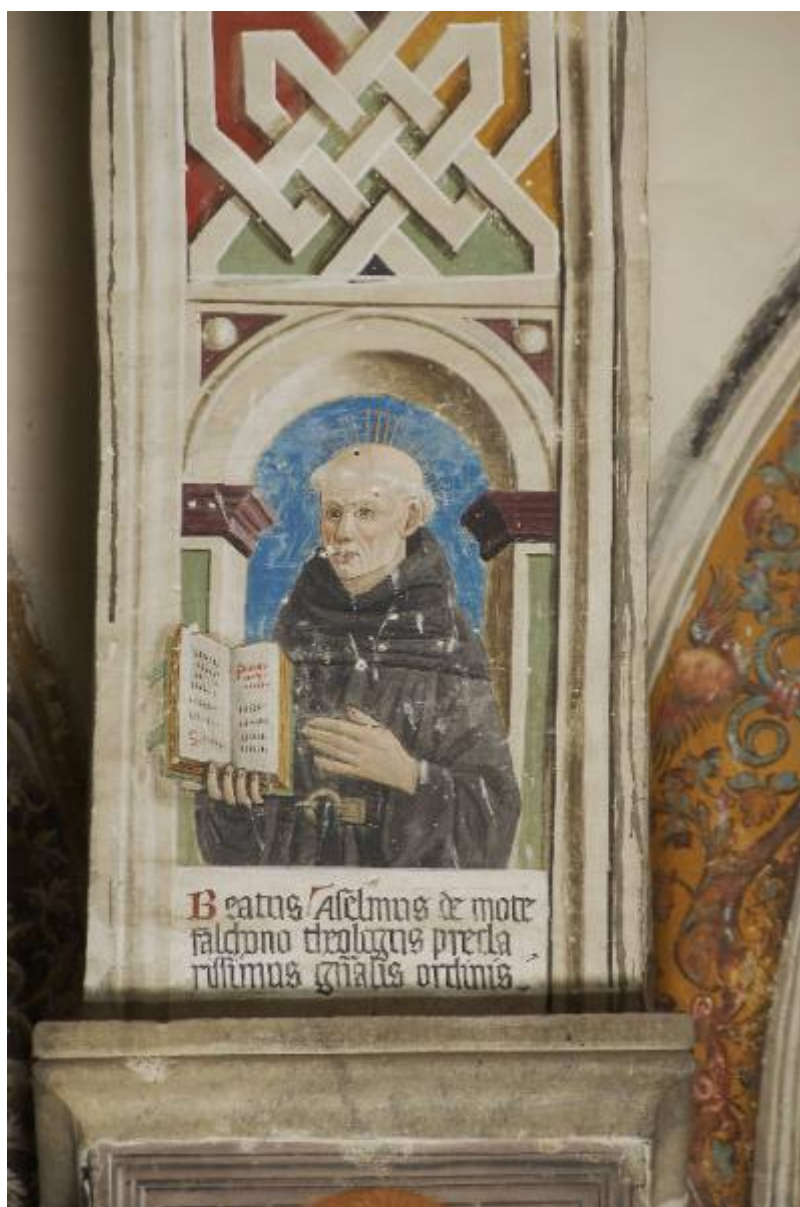 Beatus Aselmus de mote
falchono theologus precla
rissimus gñalis ordinis